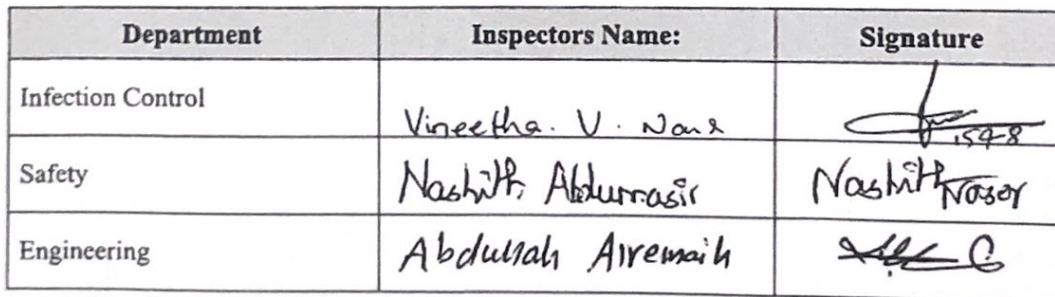 Department Inspectors Name: Signature
Infection Control Vineetha. V. Nair 1598
Safety Nashith Abdunnasir Nashith Naser
Engineering Abdullah Alremaih